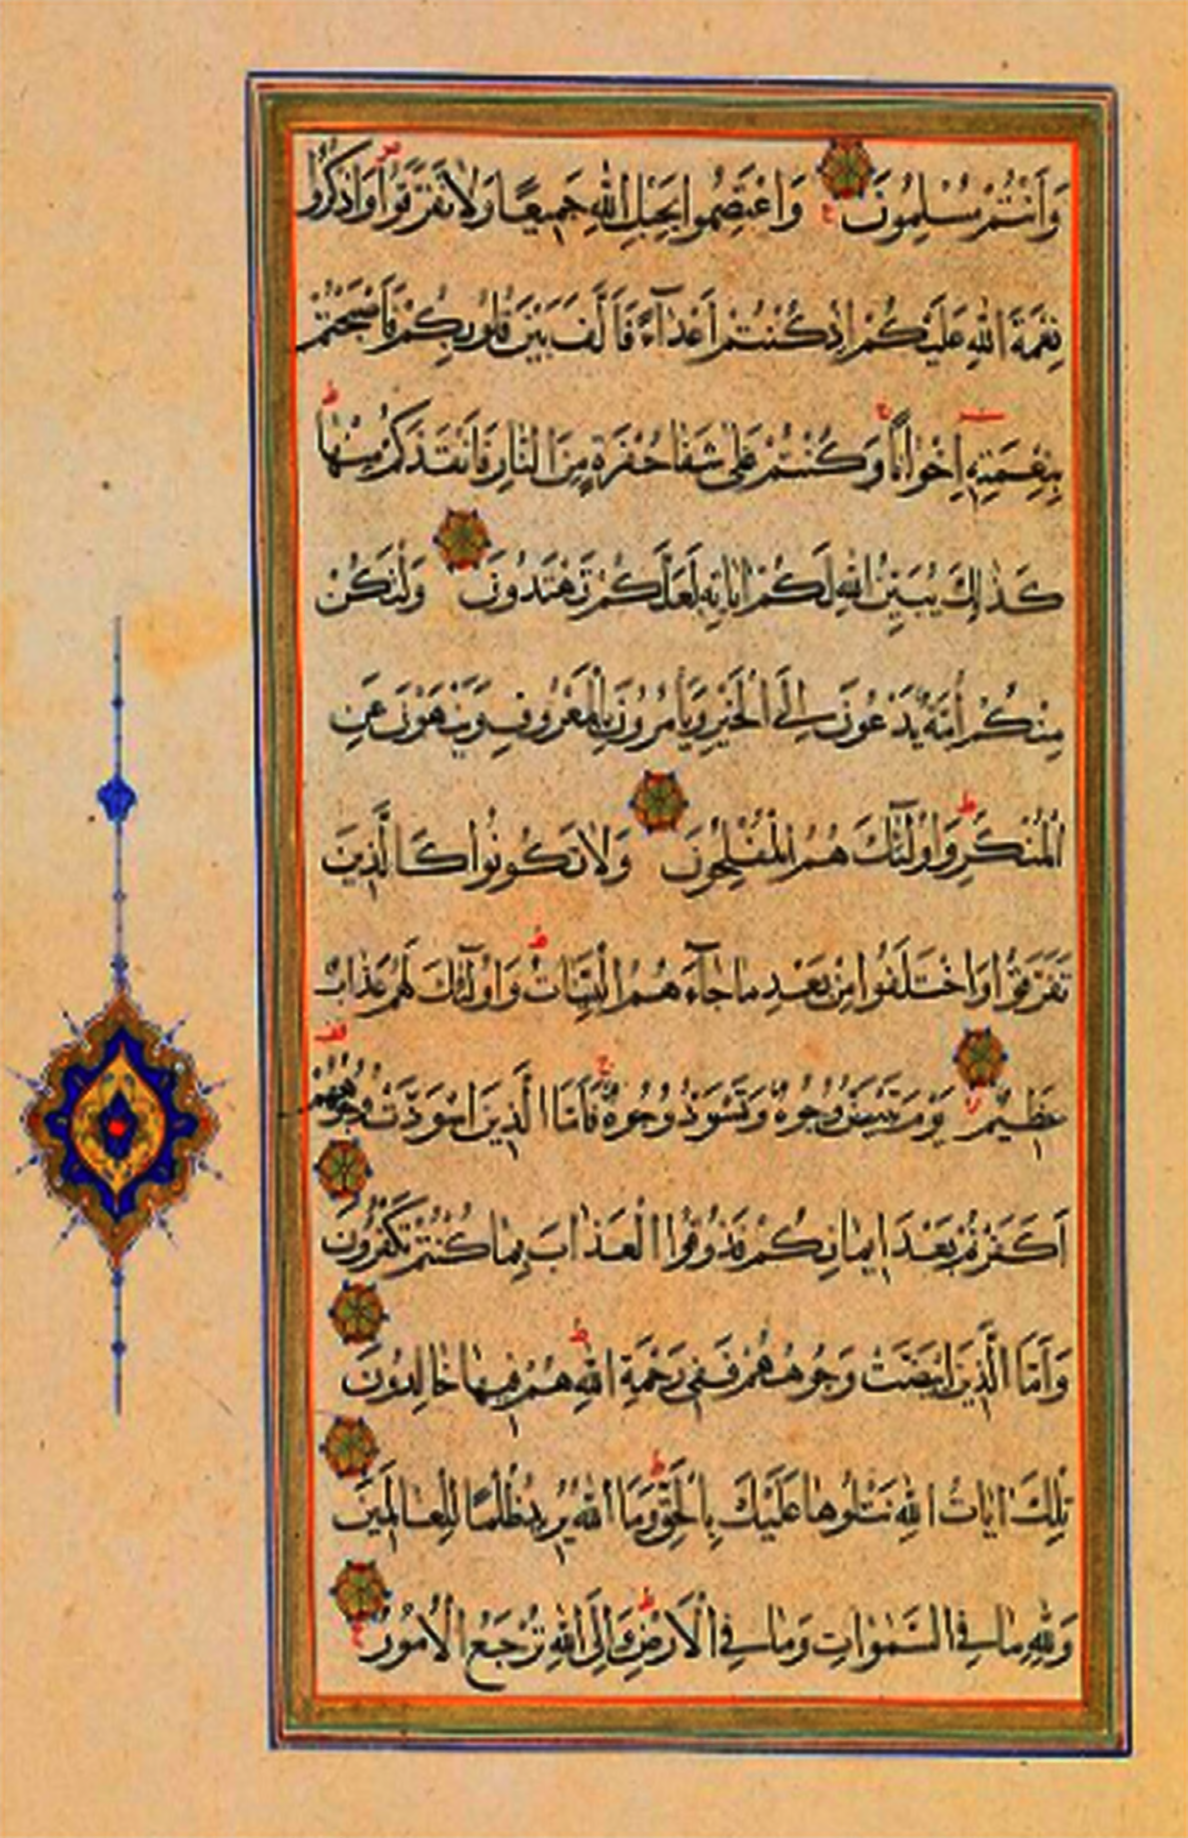 وَأَنْتُمْ مُسْلِمُونَ وَاعْتَصِمُوا بِحَبْلِ اللّٰهِ جَمِيعًا وَلَا تَفَرَّقُوا وَاذْكُرُوا
نِعْمَةَ اللّٰهِ عَلَيْكُمْ اِذْ كُنْتُمْ اَعْدَآءً فَاَلَّفَ بَيْنَ قُلُوبِكُمْ فَاَصْبَحْتُمْ
بِنِعْمَتِهِ اِخْوَانًا وَكُنْتُمْ عَلٰى شَفَا حُفْرَةٍ مِنَ النَّارِ فَاَنْقَذَكُمْ مِنْهَا
كَذٰلِكَ يُبَيِّنُ اللّٰهُ لَكُمْ اٰيَاتِهِ لَعَلَّكُمْ تَهْتَدُونَ وَلْتَكُنْ
مِنْكُمْ اُمَّةٌ يَدْعُونَ اِلَى الْخَيْرِ وَيَأْمُرُونَ بِالْمَعْرُوفِ وَيَنْهَوْنَ عَنِ
الْمُنْكَرِ وَاُولٰٓئِكَ هُمُ الْمُفْلِحُونَ وَلَا تَكُونُوا كَالَّذِينَ
تَفَرَّقُوا وَاخْتَلَفُوا مِنْ بَعْدِ مَا جَآءَهُمُ الْبَيِّنَاتُ وَاُولٰٓئِكَ لَهُمْ عَذَابٌ
عَظِيمٌ يَوْمَ تَبْيَضُّ وُجُوهٌ وَتَسْوَدُّ وُجُوهٌ فَاَمَّا الَّذِينَ اسْوَدَّتْ وُجُوهُهُمْ
اَكَفَرْتُمْ بَعْدَ اِيمَانِكُمْ فَذُوقُوا الْعَذَابَ بِمَا كُنْتُمْ تَكْفُرُونَ
وَاَمَّا الَّذِينَ ابْيَضَّتْ وُجُوهُهُمْ فَفِي رَحْمَةِ اللّٰهِ هُمْ فِيهَا خَالِدُونَ
تِلْكَ اٰيَاتُ اللّٰهِ نَتْلُوهَا عَلَيْكَ بِالْحَقِّ وَمَا اللّٰهُ يُرِيدُ ظُلْمًا لِلْعَالَمِينَ
وَلِلّٰهِ مَا فِي السَّمٰوَاتِ وَمَا فِي الْاَرْضِ وَاِلَى اللّٰهِ تُرْجَعُ الْاُمُورُ